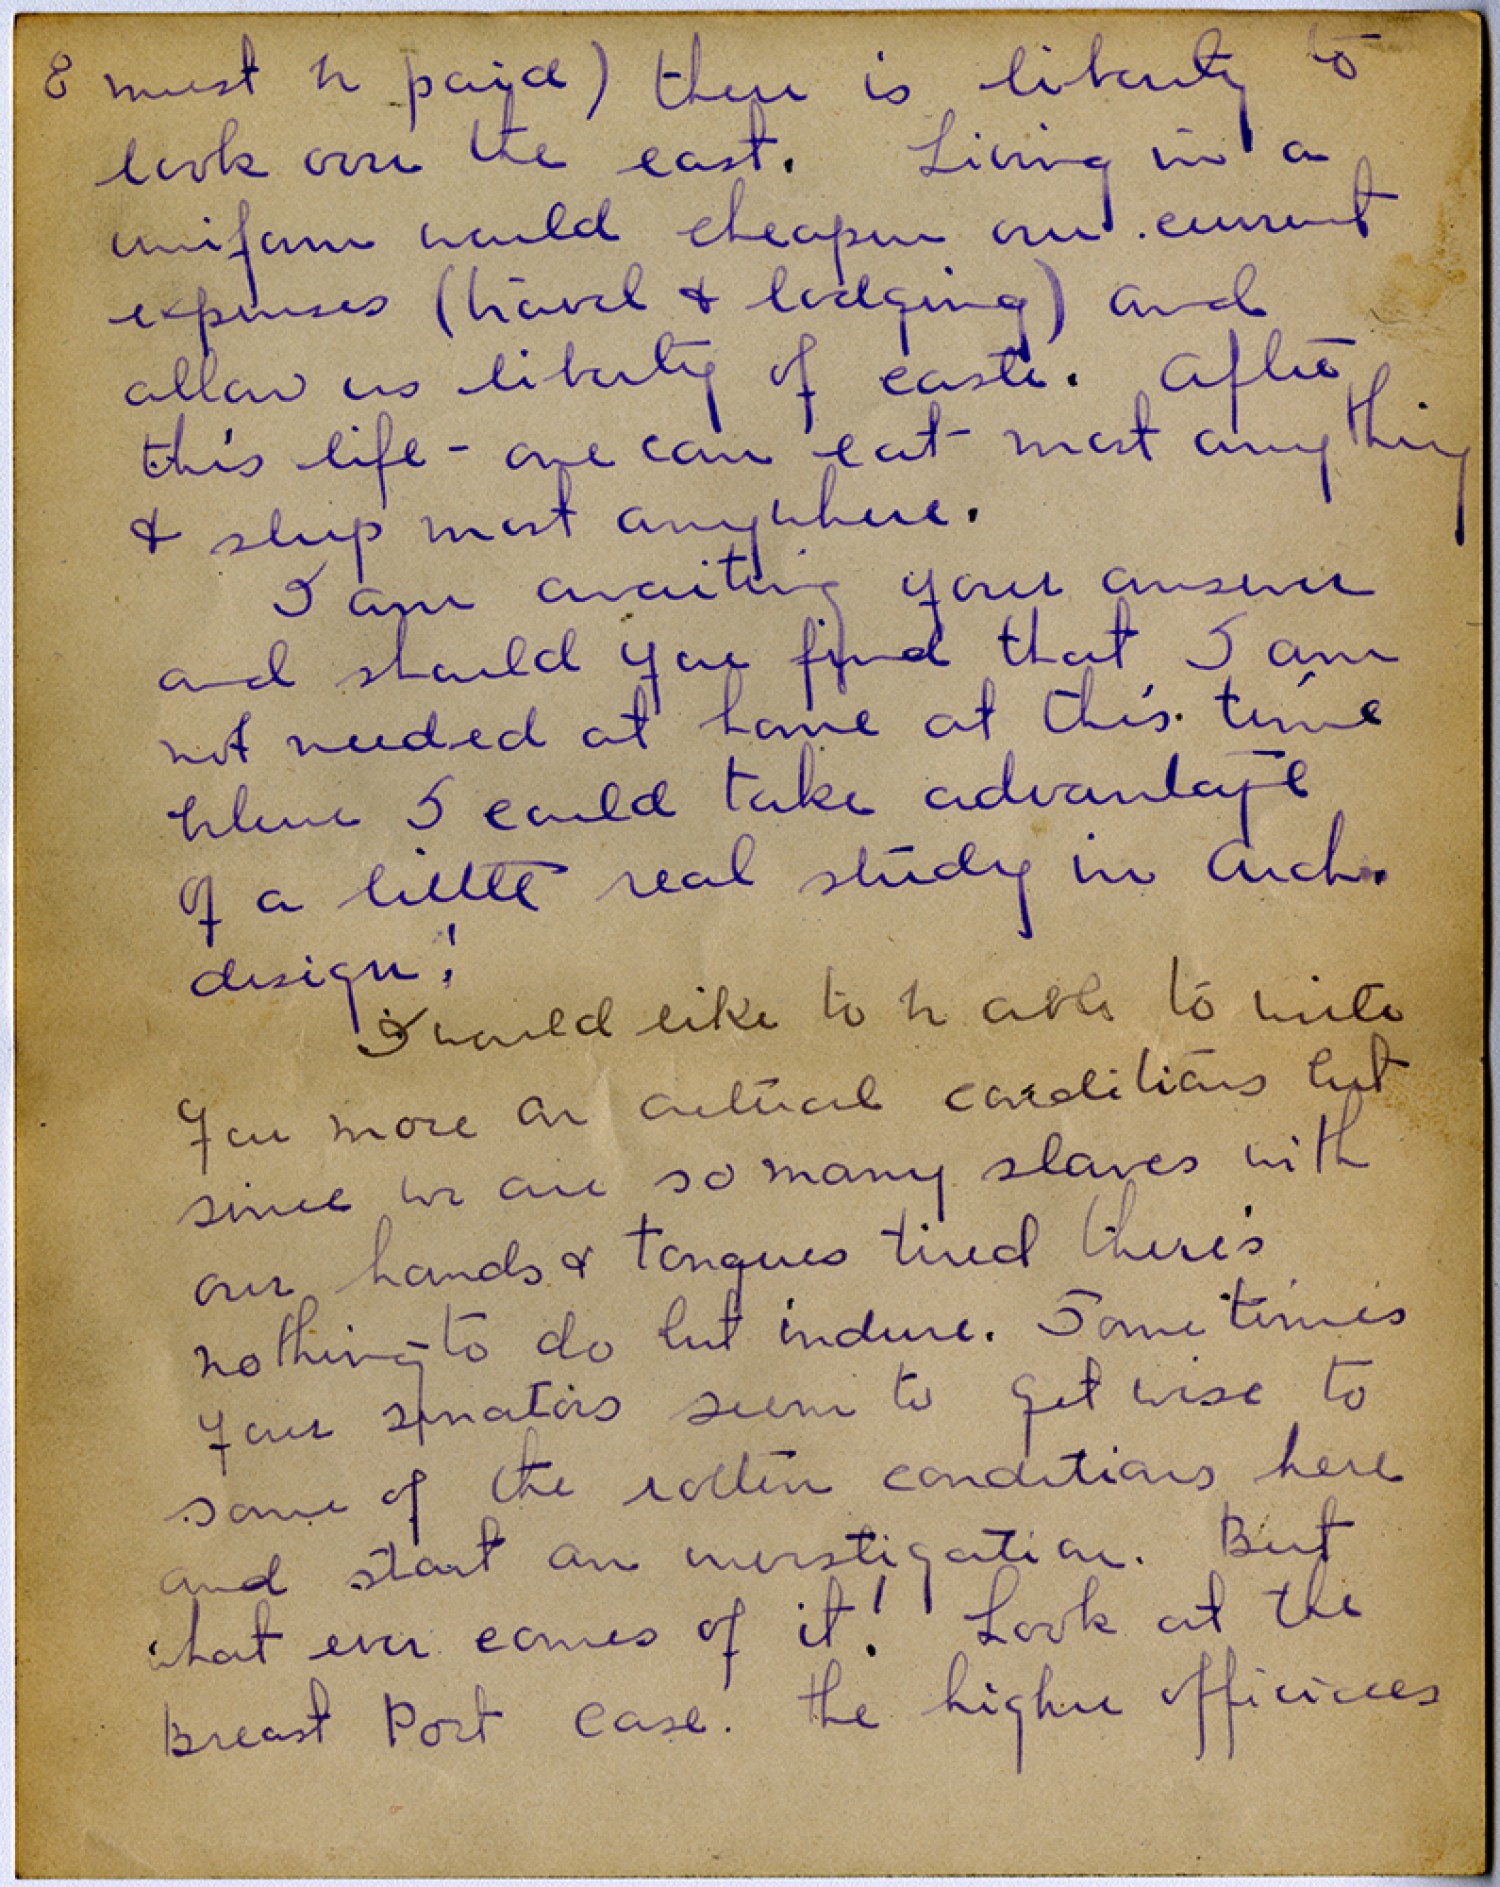 & must be paid) there is liberty to
look over the east. Living in a
uniform would cheapen our current
expenses (travel & lodging) and
allow us liberty of caste. After
this life - one can eat most anything
& sleep most anywhere.
I am awaiting your answer
and should you find that I am
not needed at home at this time
where I could take advantage
of a little real study in Arch.
design!
I would like to be able to write
you more on actual conditions but
since we are so many slaves with
our hands & tongues tired there's
nothing to do but indure. Some times
your senators seem to get wise to
some of the rotten conditions here
and start an inverstigation. But
what ever comes of it! Look at the
Breast Port case. The higher officiees